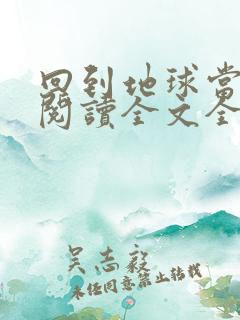 回到地球當
閱讀全文全
吳志毅
未任同意禁止轉載